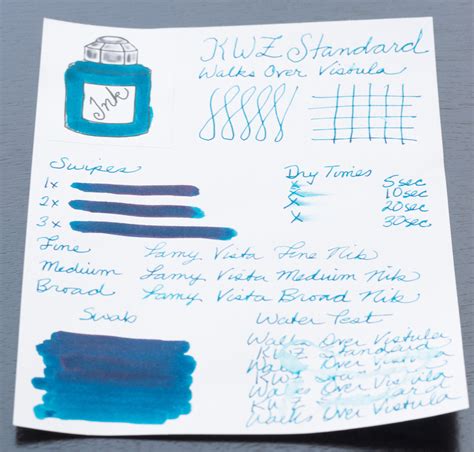 Ink
KWZ Standard
Walks Over Vistula
Swipes
1x
2x
3x
Dry Times
x 5sec
x 10sec
x 20sec
x 30sec
Fine Lamy Vista Fine Nib
Medium Lamy Vista Meduim Nib
Broad Lamy Vista Broad Nib
Swab
Water Test
Walks Over Vistula
KWZ Standard
Walks Over Vistula
KWZ Standard
Walks Over Vistula
KWZ Standard
Walks Over Vistula